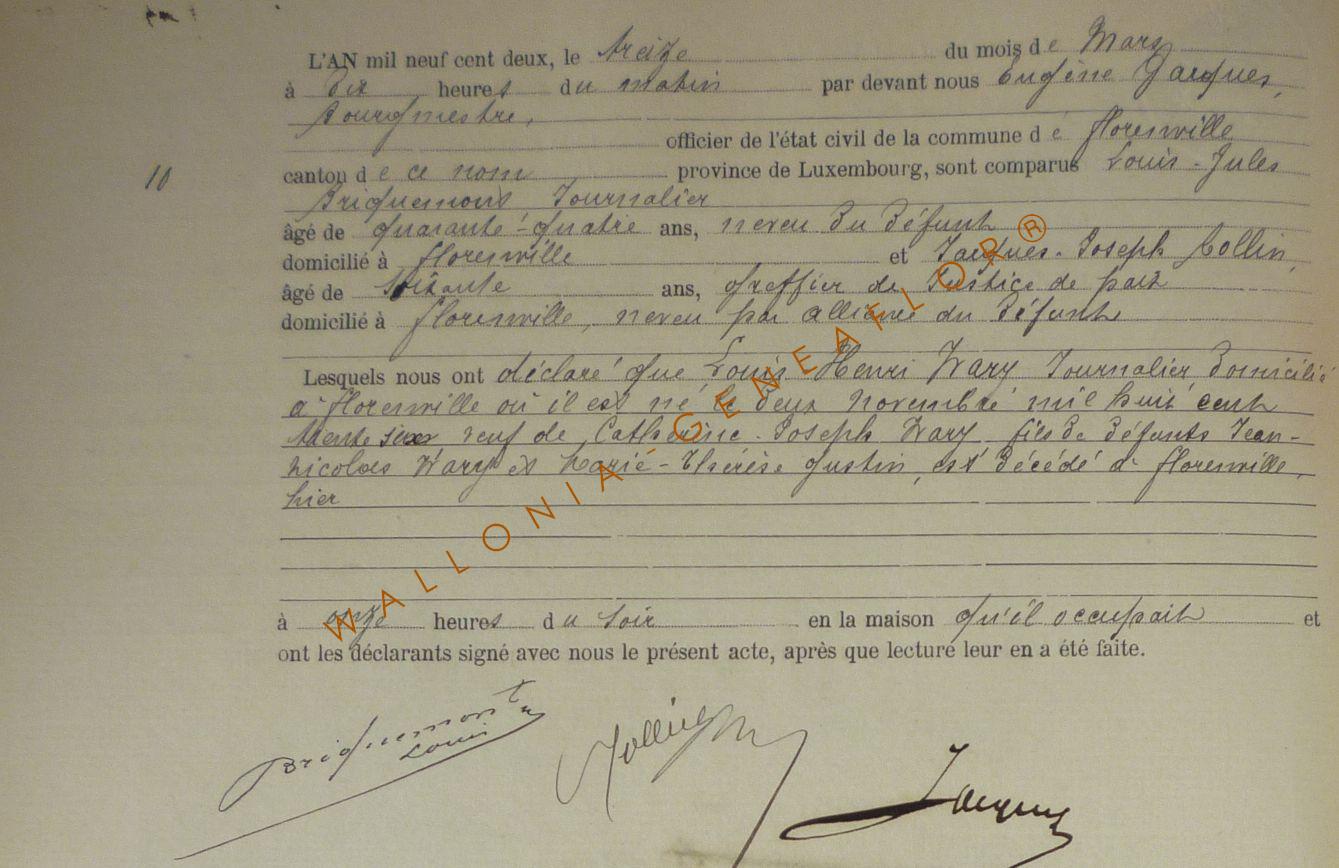 L'AN mil neuf cent deux, le treize du mois de Mars
à dix heures du matin par devant nous Eugène Jacques,
Bourgmestre,
officier de l'état civil de la commune de Florenville
10
canton de ce nom province de Luxembourg, sont comparus Louis-Jules
Briquemont Journalier
âgé de quarante-quatre ans, neveu du défunt
domicilié à Florenville et Jacques-Joseph Collin,
âgé de soixante ans, greffier de Justice de paix
domicilié à Florenville, neveu par alliance du défunt
Lesquels nous ont déclaré que Louis Henri Wary Journalier domicilié
à Florenville où il est né le deux novembre mil huit cent
trente veuf de Catherine-Joseph Wary fils de défunts Jean-
Nicolas Wary et Marie-Thérèse Gustin, est décédé à Florenville,
hier
à onze heures du soir en la maison qu'il occupait et
ont les déclarants signé avec nous le présent acte, après que lecture leur en a été faite.
Briquemont
Louis
Collin
Jacques
WALLONIA GENEAFLOR®